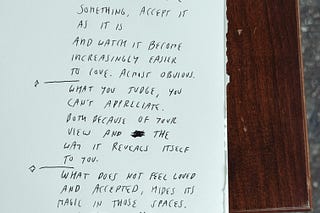 SOMETHING, ACCEPT IT
AS IT IS
AND WATCH IT BECOME
INCREASINGLY EASIER
TO LOVE. ALMOST OBVIOUS.
WHAT YOU JUDGE, YOU
CAN'T APPRECIATE.
BOTH BECAUSE OF YOUR
VIEW AND THE
WAY IT REVEALS ITSELF
TO YOU.
WHAT DOES NOT FEEL LOVED
AND ACCEPTED, HIDES ITS
MAGIC IN THOSE SPACES.